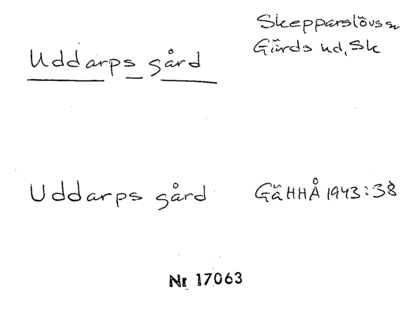 Skepparslövs sn
Uddarps gård Gärds hd, Sk
Uddarps gård GäHHÅ 1943:38
Nr 17063